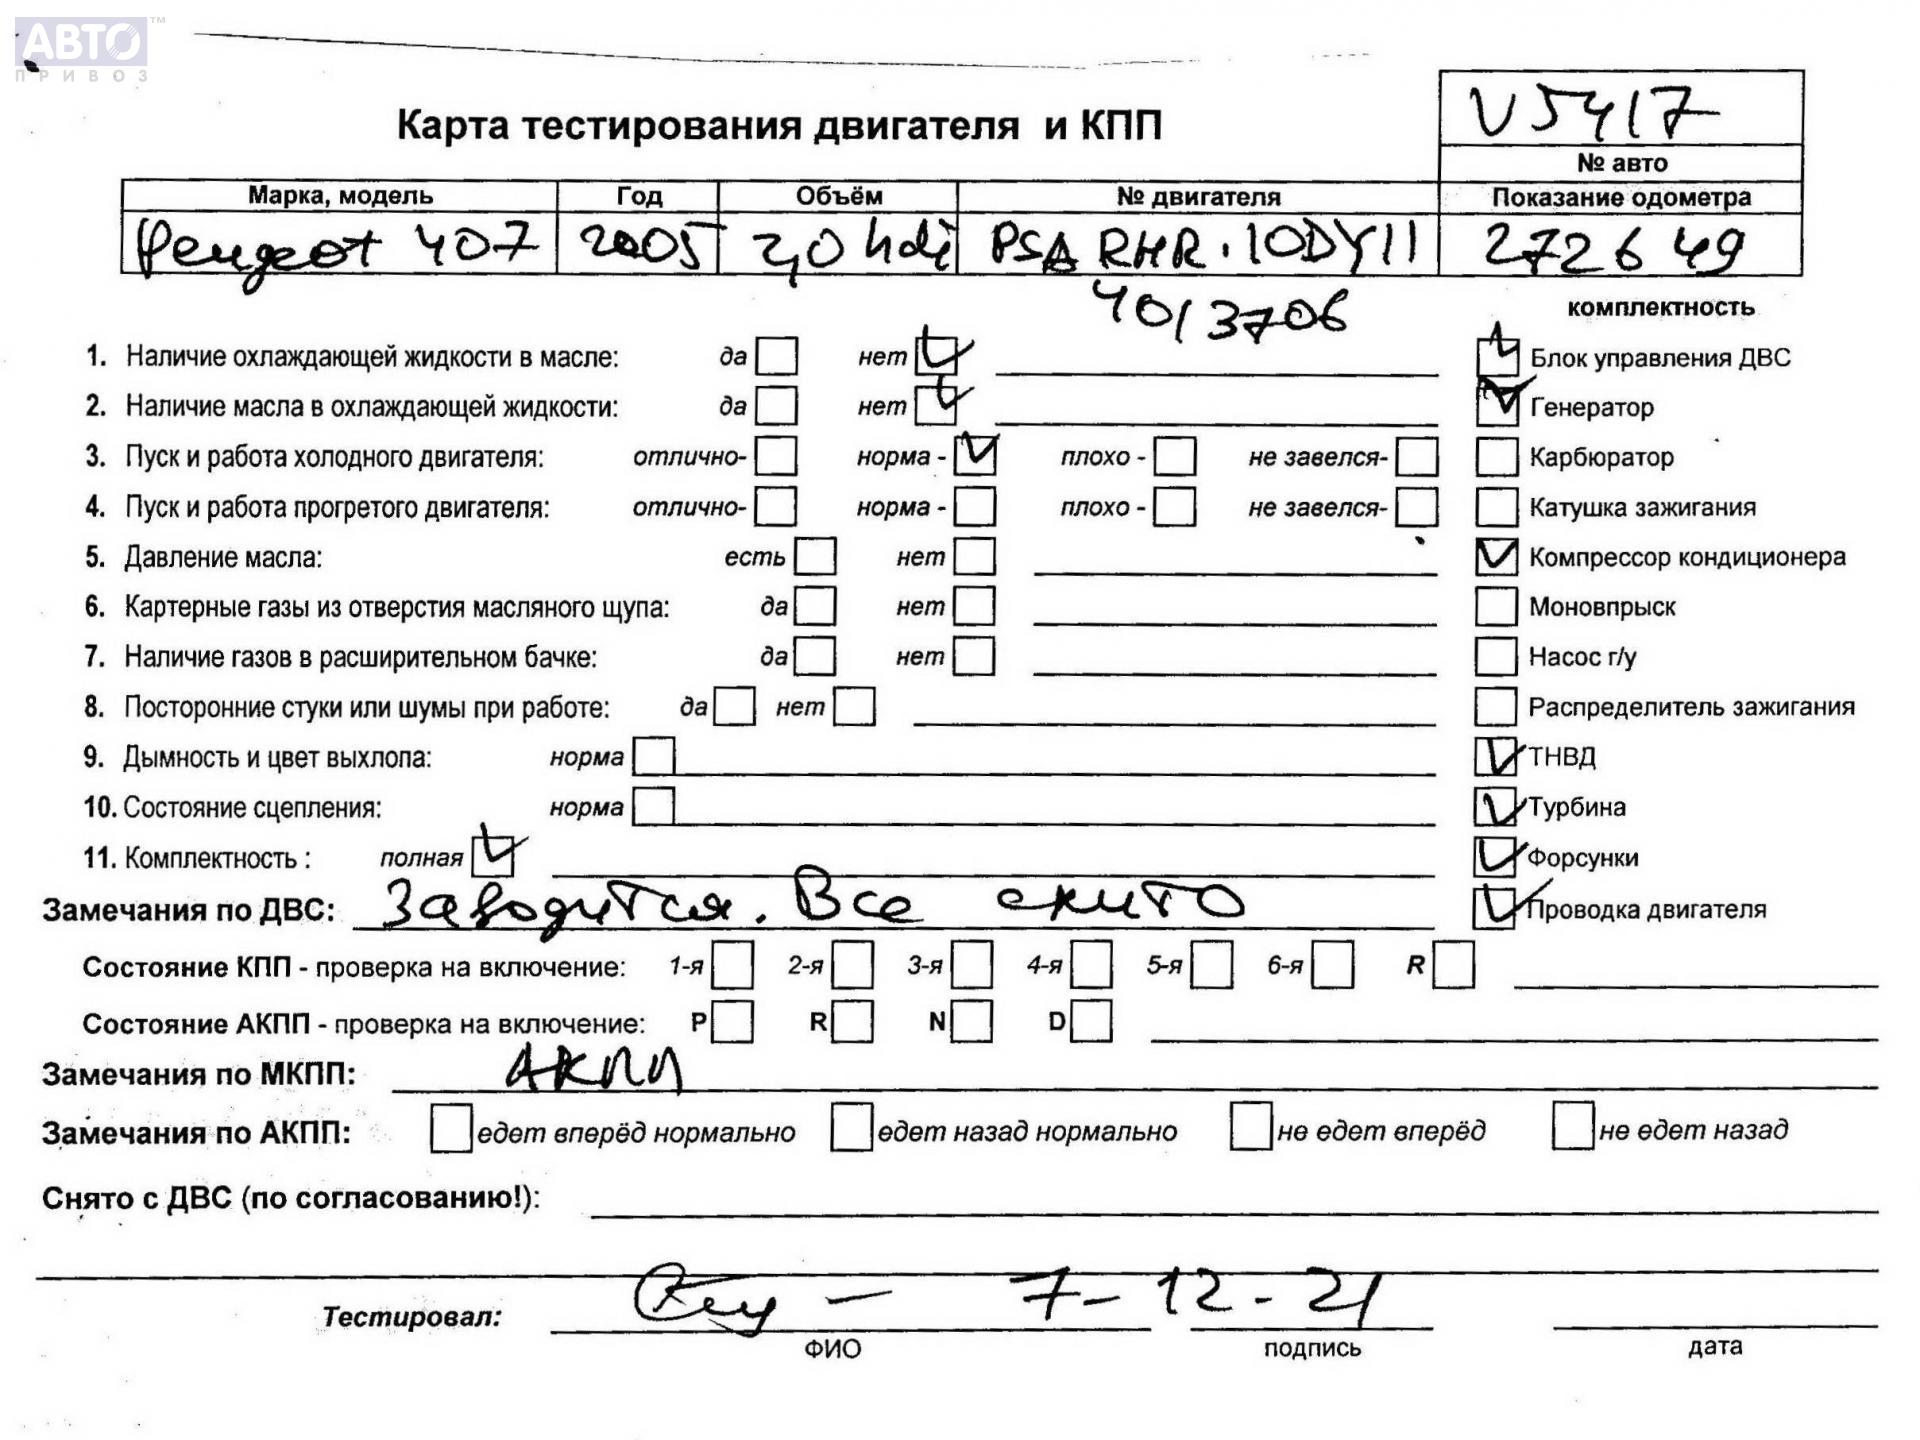 АВТО™
ПРИВОЗ
V5417
Карта тестирования двигателя и КПП
№ авто
Марка, модель Год Объём № двигателя Показание одометра
Peugeot 407 2005 2,0 hdi PSA RHR. 10DY11 272649
4013706
комплектность
1. Наличие охлаждающей жидкости в масле: да нет Блок управления ДВС
2. Наличие масла в охлаждающей жидкости: да нет Генератор
3. Пуск и работа холодного двигателя: отлично- норма - плохо - не завелся- Карбюратор
4. Пуск и работа прогретого двигателя: отлично- норма - плохо - не завелся- Катушка зажигания
5. Давление масла: есть нет Компрессор кондиционера
6. Картерные газы из отверстия масляного щупа: да нет Моновпрыск
7. Наличие газов в расширительном бачке: да нет Насос г/у
8. Посторонние стуки или шумы при работе: да нет Распределитель зажигания
9. Дымность и цвет выхлопа: норма ТНВД
10. Состояние сцепления: норма Турбина
11. Комплектность : полная Форсунки
Замечания по ДВС: Заводится. Все снито Проводка двигателя
Состояние КПП - проверка на включение: 1-я 2-я 3-я 4-я 5-я 6-я R
Состояние АКПП - проверка на включение: P R N D
Замечания по МКПП: АКПП
Замечания по АКПП: едет вперёд нормально едет назад нормально не едет вперёд не едет назад
Снято с ДВС (по согласованию!):
Тестировал: 7-12-21
ФИО подпись дата